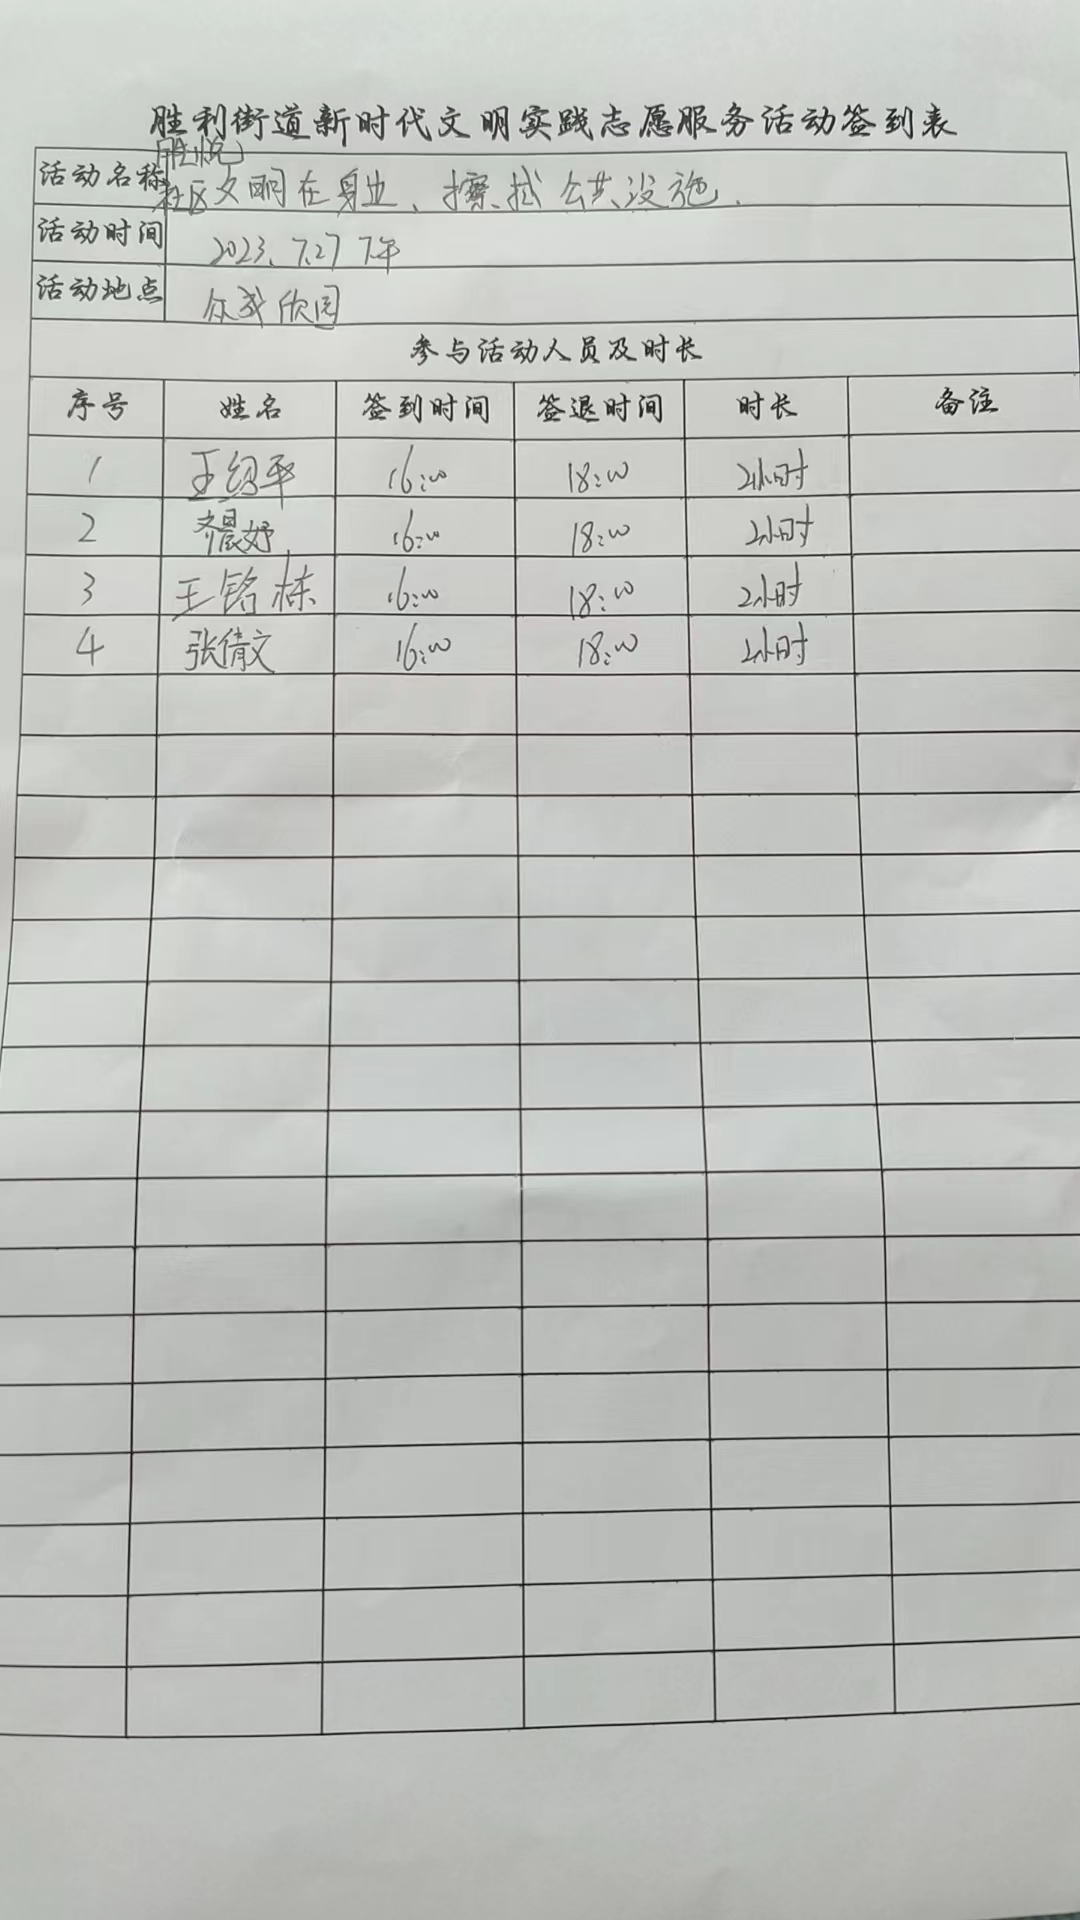 胜利街道新时代文明实践志愿服务活动签到表
活动名称 胜悦社区文明在身边、擦拭公共设施.
活动时间 2023.7.27 下午
活动地点 众成欣园
参与活动人员及时长
序号 姓名 签到时间 签退时间 时长 备注
1 王绍平 16:00 18:00 2小时
2 齐晨妤 16:00 18:00 2小时
3 王铭栋 16:00 18:00 2小时
4 张倩文 16:00 18:00 2小时